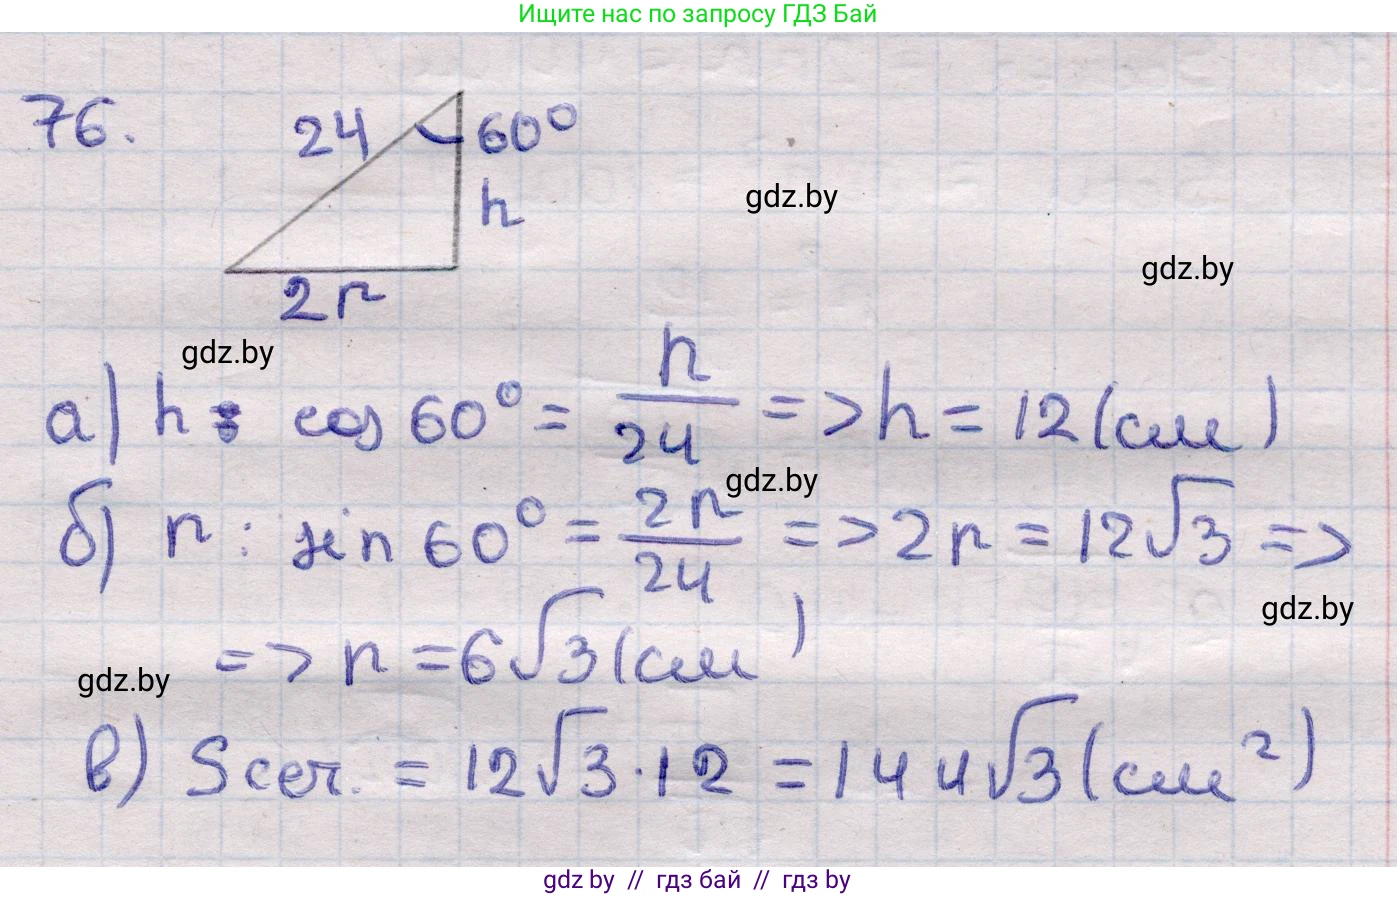 Ищите нас по запросу ГДЗ Бай
76.
24
60°
h
2r
gdz.by
gdz.by
gdz.by
а) h: cos 60° = h/24 => h = 12 (см)
gdz.by
б) r: sin 60° = 2r/24 => 2r = 12√3 =>
gdz.by
=> r = 6√3 (см)
gdz.by
в) Sсеч. = 12√3 · 12 = 144√3 (см²)
gdz by // гдз бай // гдз by